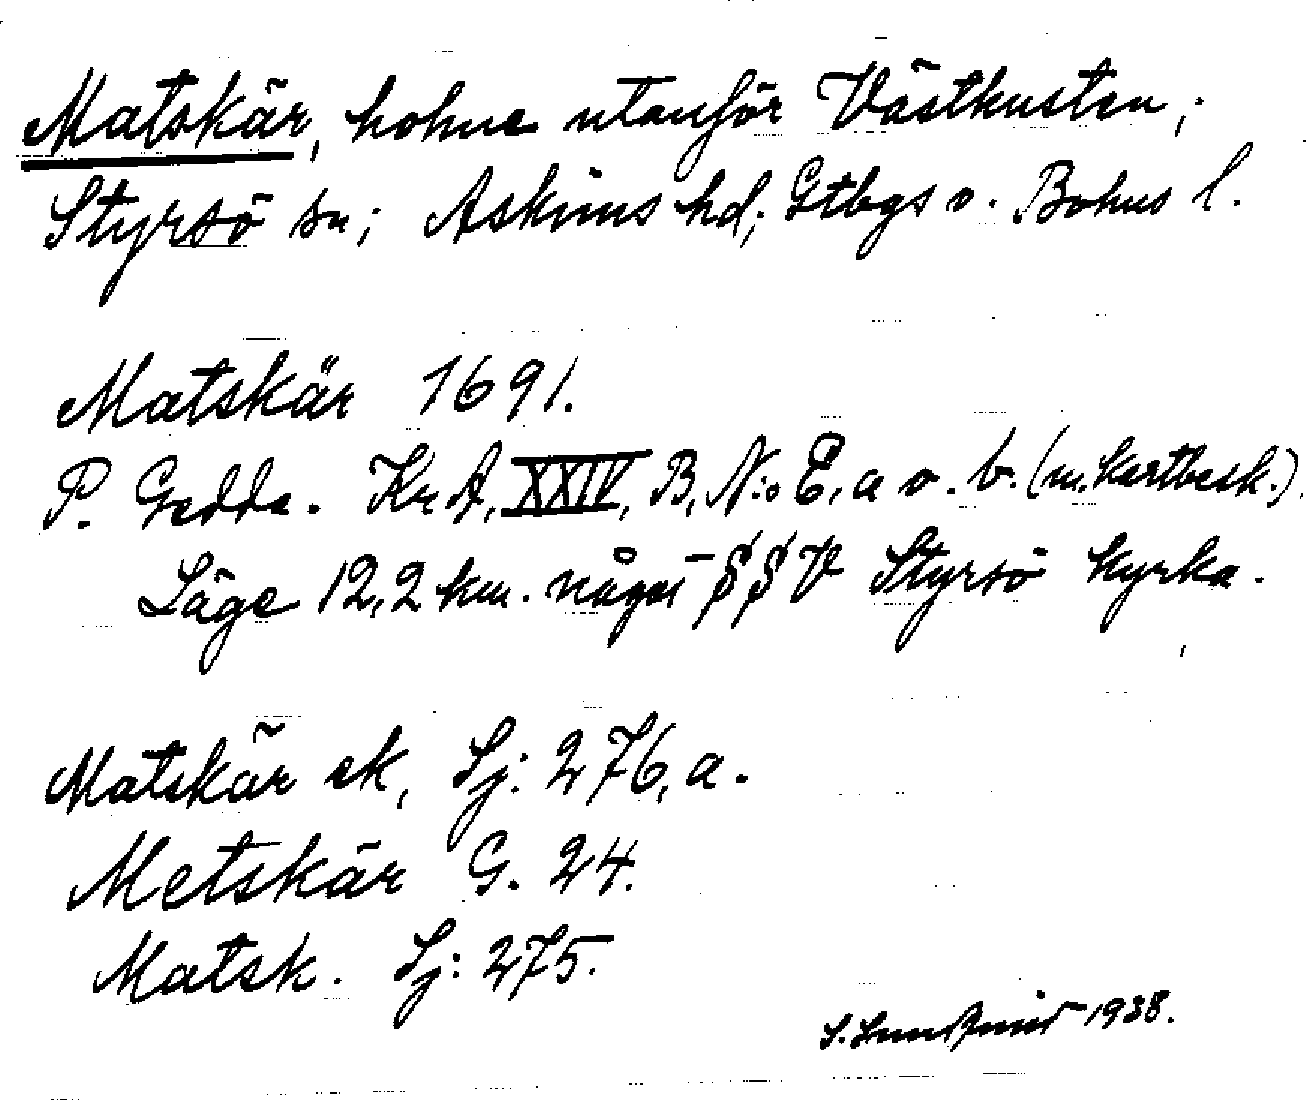 Matskär, holme utanför Västkusten;
Styrsö sn; Askims hd; Gtbgs o. Bohus l.
Matskär 1691.
P. Gedda. Kr.A, XXIV, B, N:o 8, a o. b. (m. kartbesk.)
Läge 12,2 km. något SSV Styrsö kyrka.
Matskär ek, Sj: 276, a.
Metskär G. 24.
Matsk. Sj: 275.
1938.